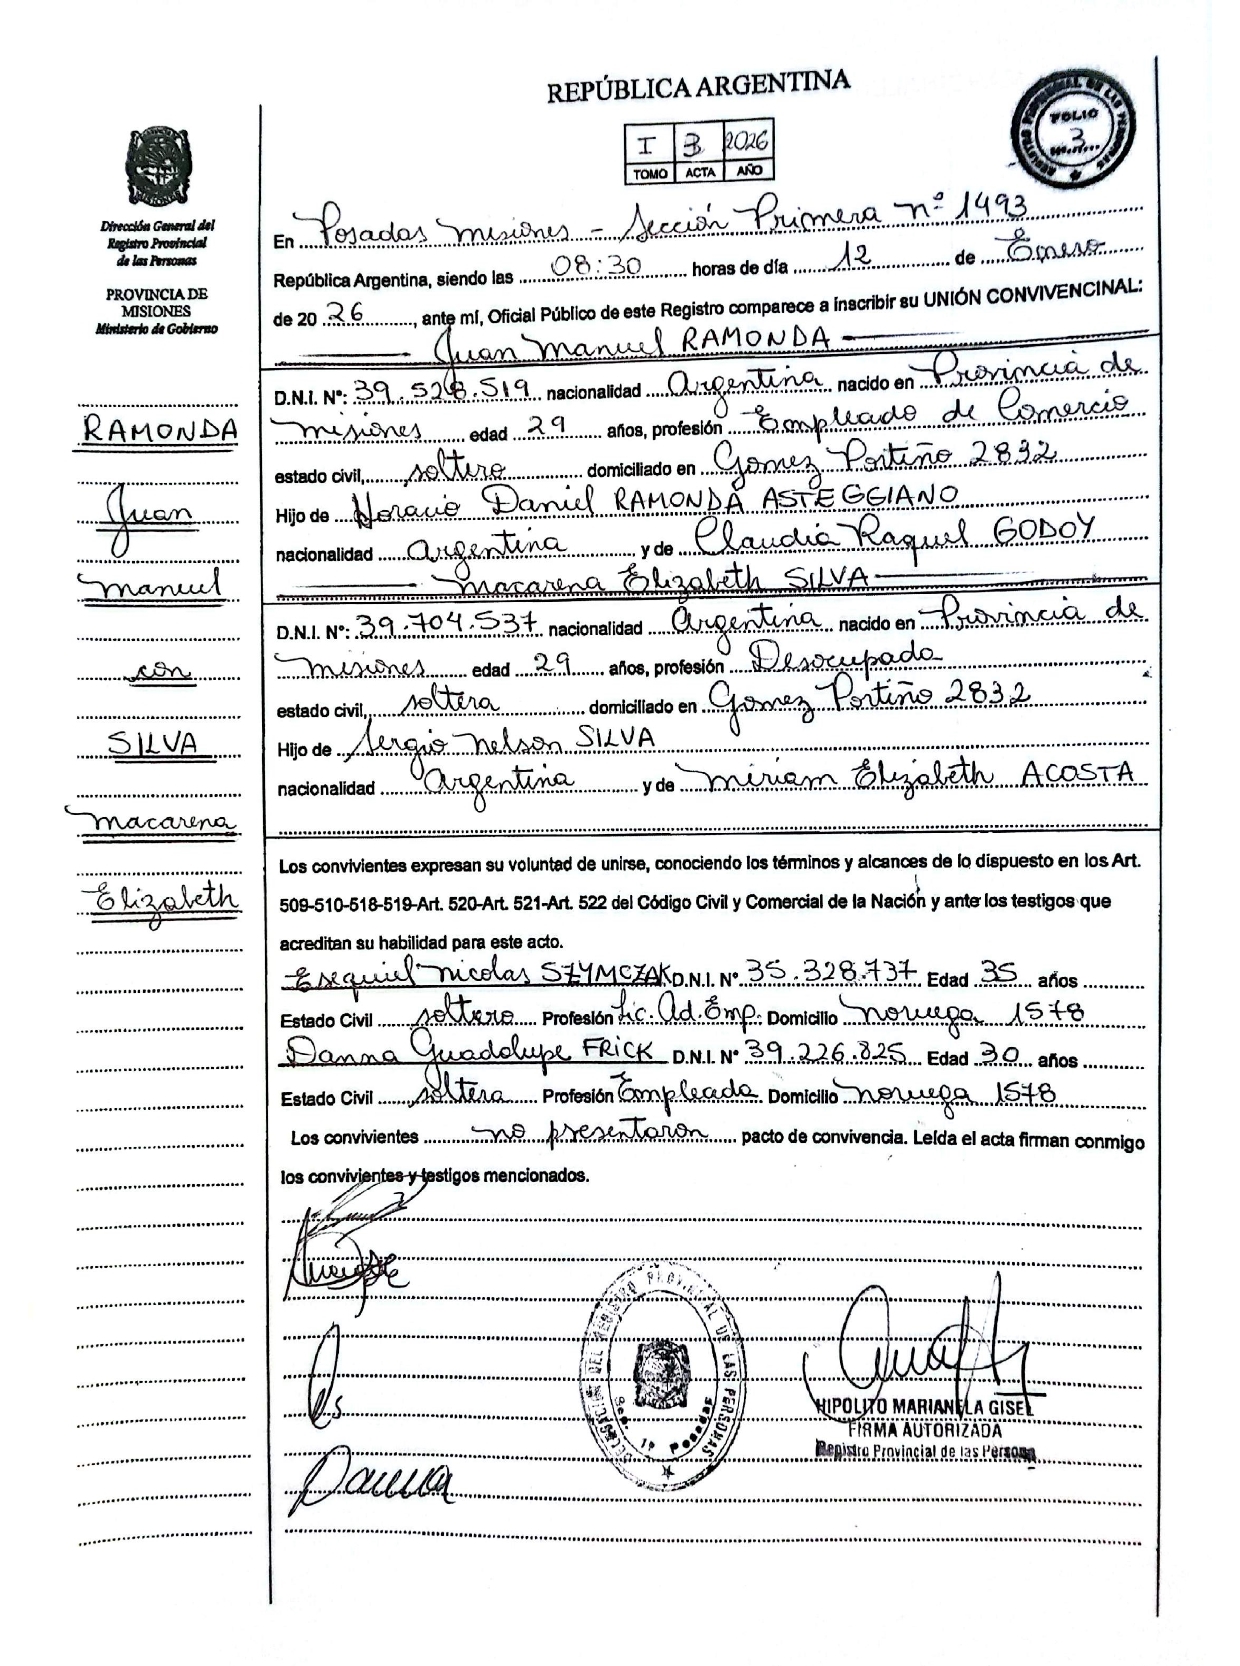 REPÚBLICA ARGENTINA
I 3 2026
TOMO ACTA AÑO
FOLIO
3
Dirección General del
Registro Provincial
de las Personas
PROVINCIA DE
MISIONES
Ministerio de Gobierno
En Posadas Misiones - Sección Primera nº 1493
República Argentina, siendo las 08:30 horas de día 12 de Enero
de 20 26, ante mí, Oficial Público de este Registro comparece a inscribir su UNIÓN CONVIVENCINAL:
Juan Manuel RAMONDA
D.N.I. Nº: 39.528.519 nacionalidad Argentina nacido en Provincia de
Misiones edad 29 años, profesión Empleado de Comercio
estado civil, soltero domiciliado en Gomez Portiño 2832
Hijo de Horacio Daniel RAMONDA ASTEGGIANO
nacionalidad Argentina y de Claudia Raquel GODOY
Macarena Elizabeth SILVA
D.N.I. Nº: 39.704.537 nacionalidad Argentina nacido en Provincia de
Misiones edad 29 años, profesión Desocupada
estado civil, soltera domiciliado en Gomez Portiño 2832
Hijo de Sergio Nelson SILVA
nacionalidad Argentina y de Miriam Elizabeth ACOSTA
RAMONDA
Juan
Manuel
con
SILVA
Macarena
Elizabeth
Los convivientes expresan su voluntad de unirse, conociendo los términos y alcances de lo dispuesto en los Art.
509-510-518-519-Art. 520-Art. 521-Art. 522 del Código Civil y Comercial de la Nación y ante los testigos que
acreditan su habilidad para este acto.
Esequiel Nicolas SZYMCZAK D.N.I. Nº 35.328.737 Edad 35 años
Estado Civil soltero Profesión Lic. Ad. Emp. Domicilio Noruega 1578
Danna Guadalupe FRICK D.N.I. Nº 39.226.825 Edad 30 años
Estado Civil soltera Profesión Empleada Domicilio Noruega 1578
Los convivientes no presentaron pacto de convivencia. Leída el acta firman conmigo
los convivientes y testigos mencionados.
DELEGACION DEL REGISTRO PROVINCIAL DE LAS PERSONAS
Sec. 1ª Posadas
HIPOLITO MARIANELA GISEL
FIRMA AUTORIZADA
Registro Provincial de las Persona
Danna